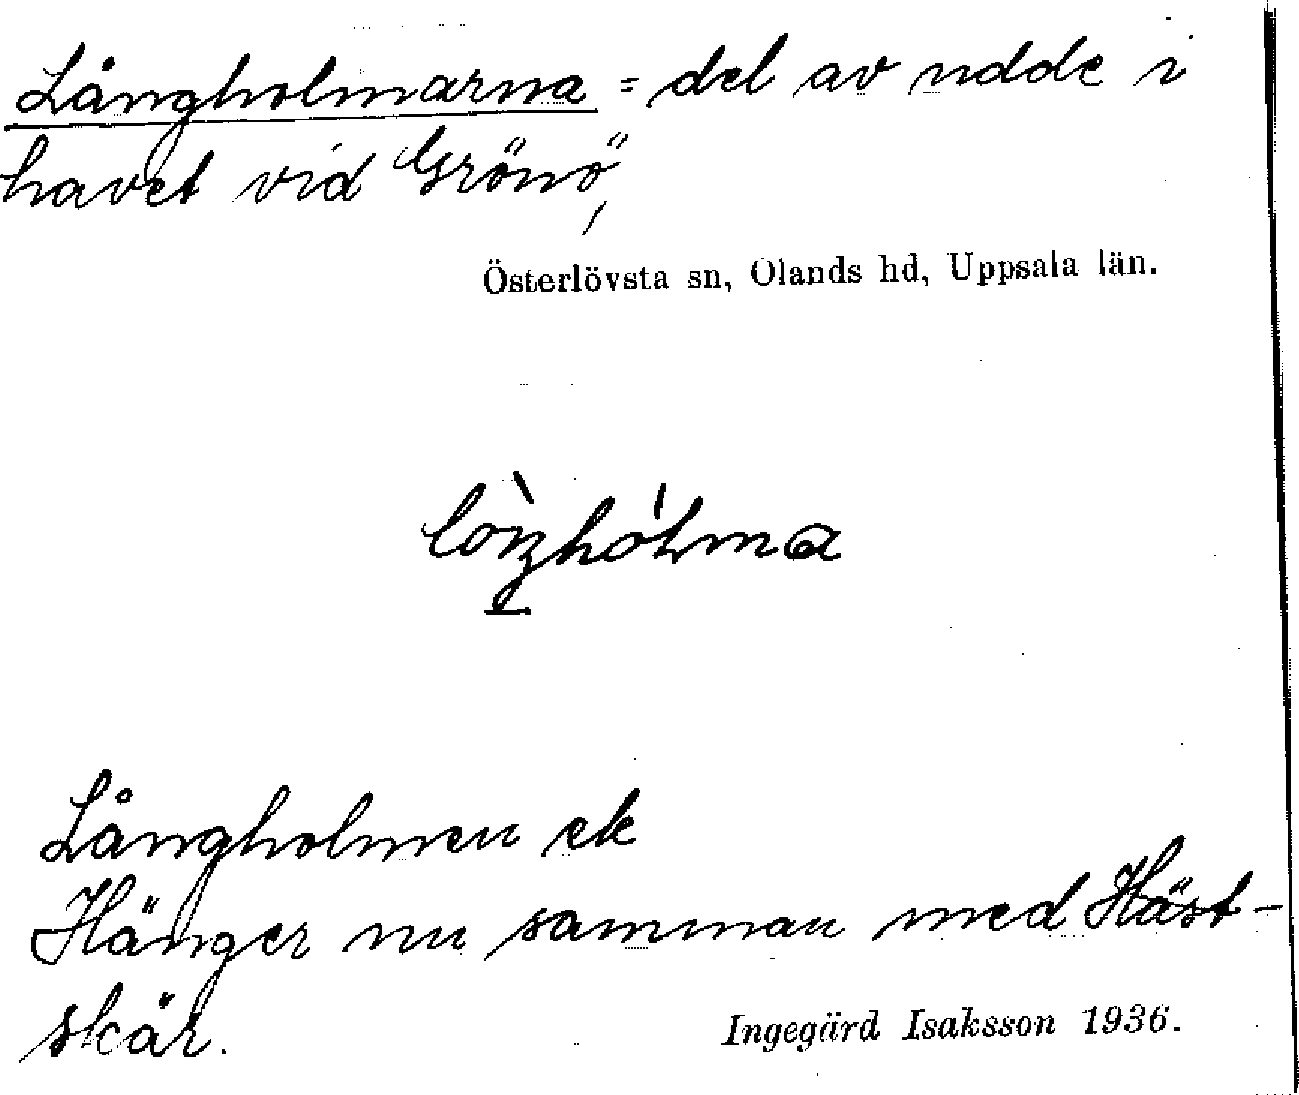 Långholmarna = del av udde i
havet vid Grönö,
Österlövsta sn, Olands hd, Uppsala län.
Långholmen ek
Hänger nu samman med Häst-
skär.
Ingegärd Isaksson 1936.